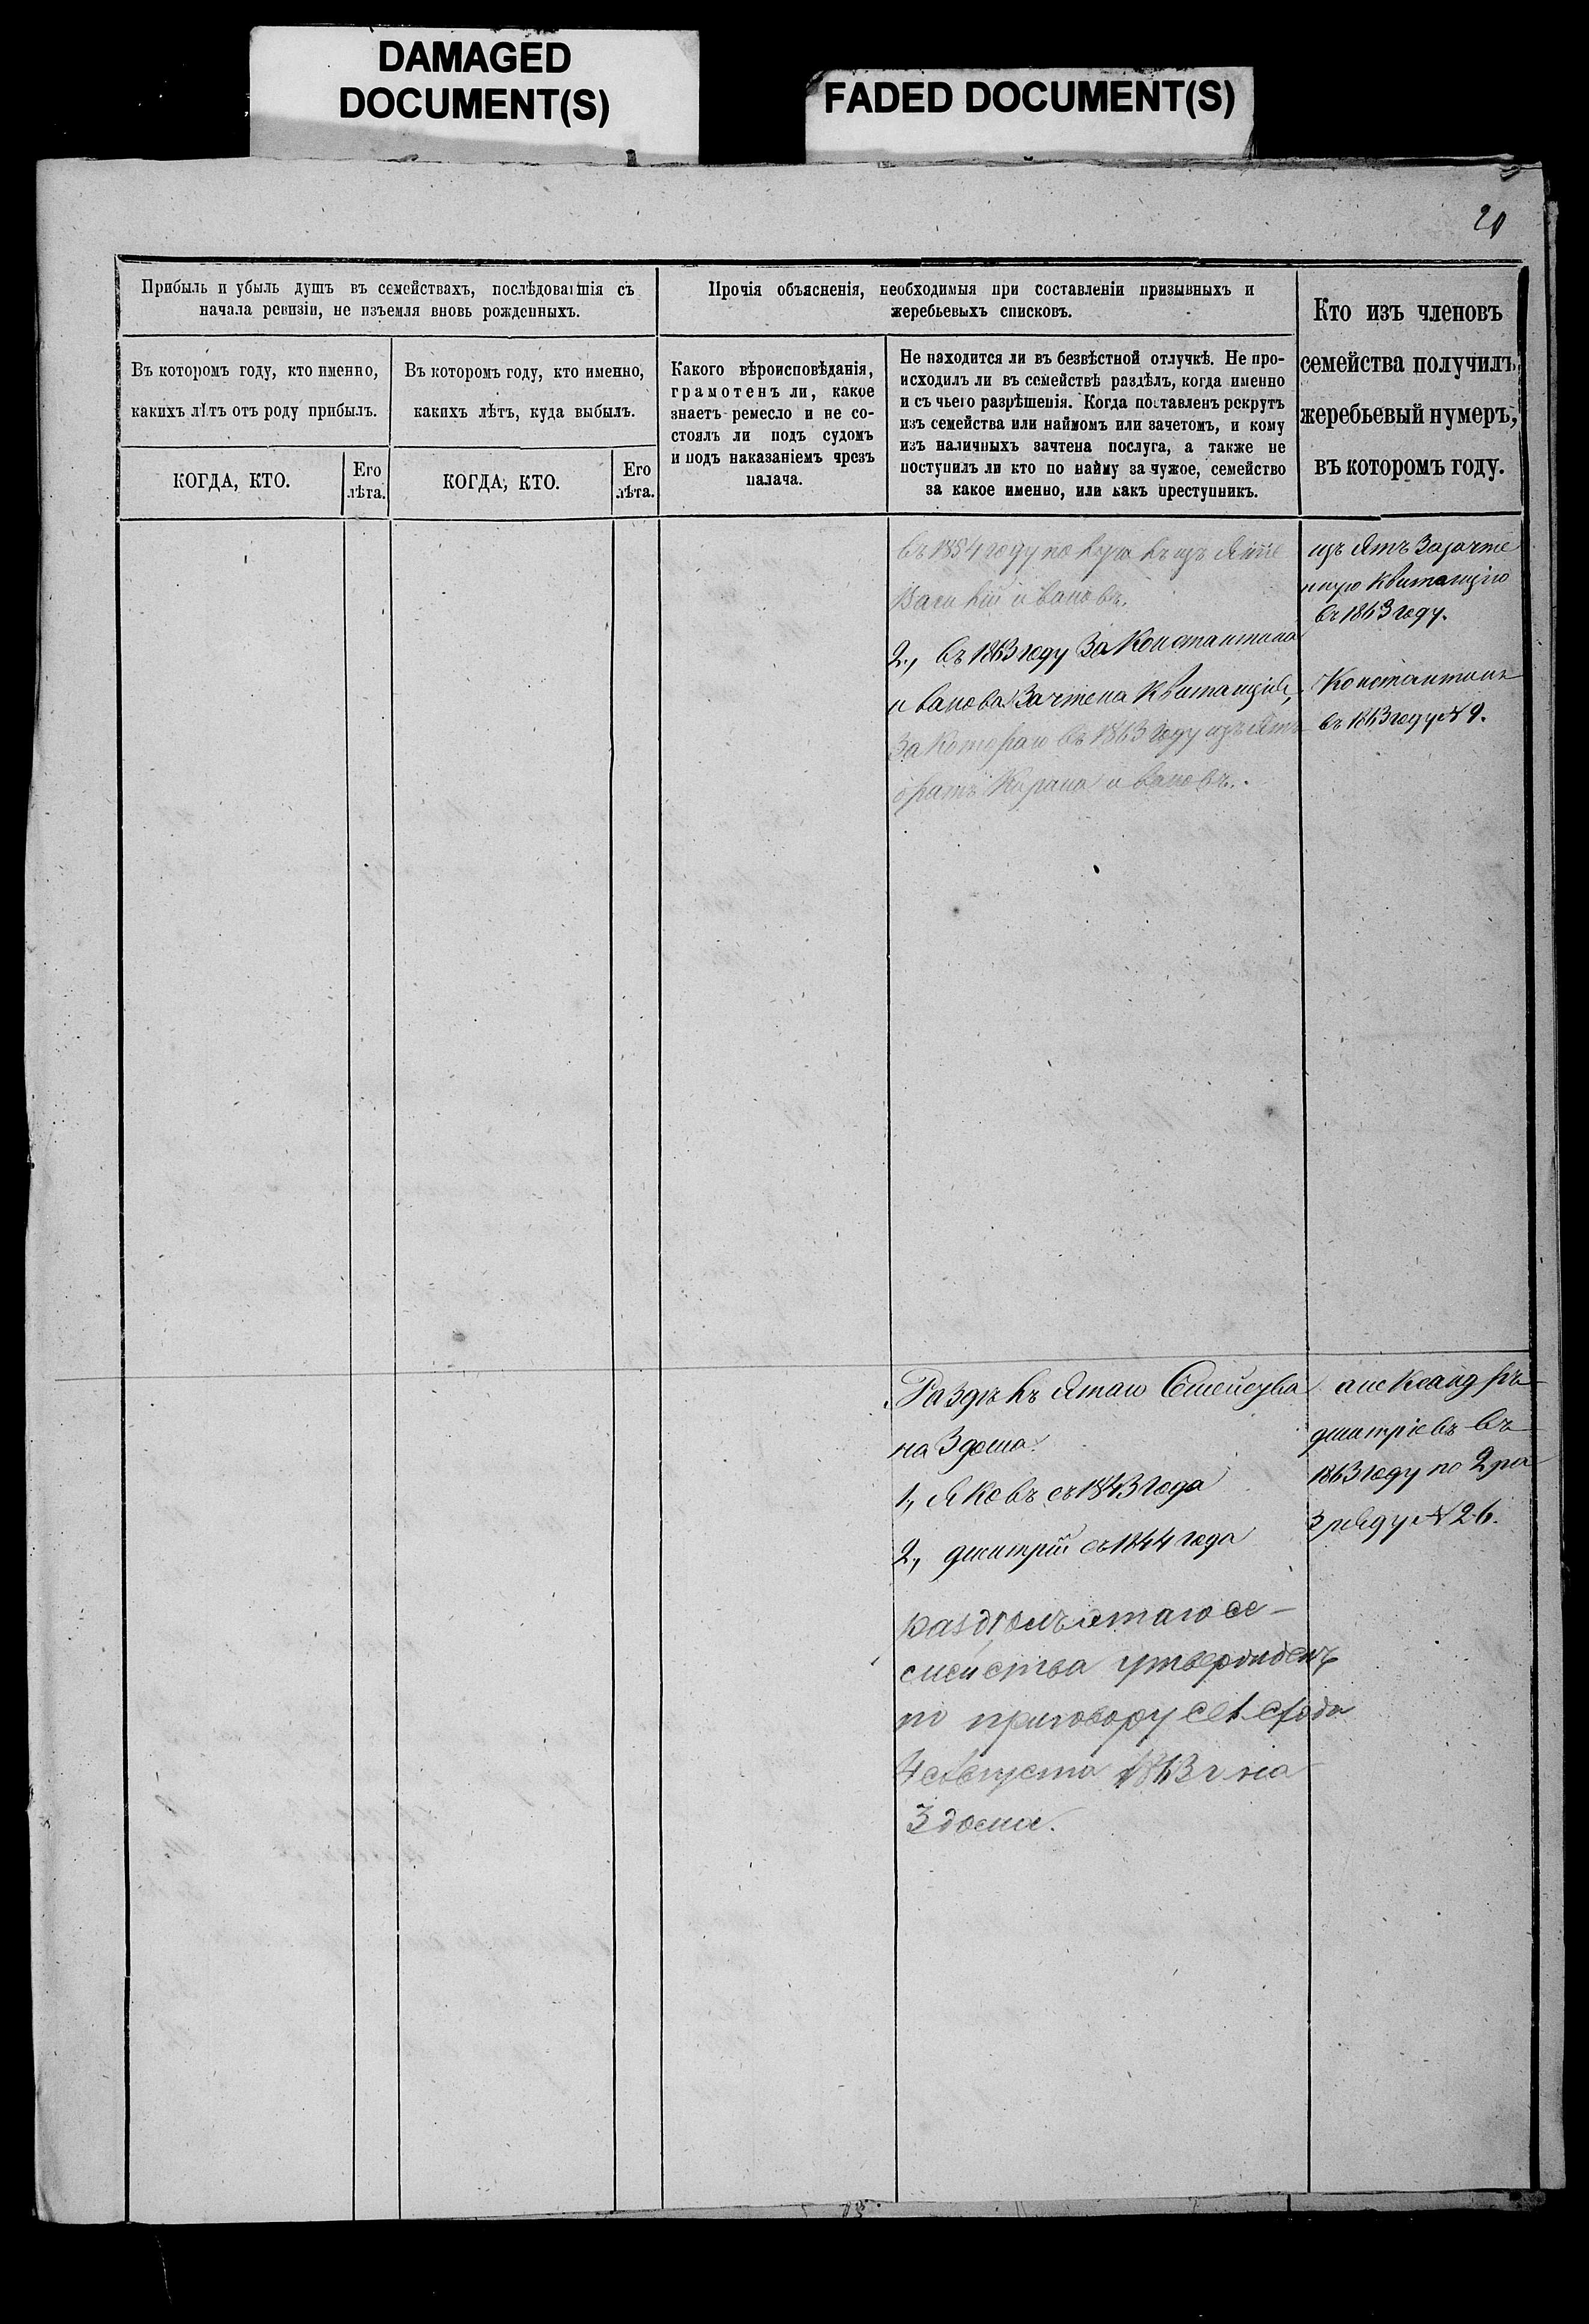 DAMAGED
DOCUMENT(S)
FADED DOCUMENT(S)
20
Прибыль и убыль душъ въ семействахъ, послѣдовавшія съ
начала ревизіи, не изъемля вновь рожденныхъ.
Въ которомъ году, кто именно,
какихъ лѣтъ отъ роду прибылъ.
Въ которомъ году, кто именно,
какихъ лѣтъ, куда выбылъ.
КОГДА, КТО.
Его
лѣта.
КОГДА, КТО.
Его
лѣта.
Прочія объясненія, необходимыя при составленіи призывныхъ и
жеребьевыхъ списковъ.
Какого вѣроисповѣданія,
грамотенъ ли, какое
знаетъ ремесло и не со-
стоялъ ли подъ судомъ
и подъ наказаніемъ чрезъ
палача.
Не находится ли въ безвѣстной отлучкѣ. Не про-
исходилъ ли въ семействѣ раздѣлъ, когда именно
и съ чьего разрѣшенія. Когда поставленъ рекрутъ
изъ семейства или наймомъ или зачетомъ, и кому
изъ наличныхъ зачтена послуга, а также не
поступилъ ли кто по найму за чужое, семейство
за какое именно, или какъ преступникъ.
Кто изъ членовъ
семейства получилъ
жеребьевый нумеръ,
въ которомъ году.
въ 1854 году
Василій ивановъ.
2., въ 1863 году За Константина
иванова Зачтена Квитанция,
За Котораго въ 1863 Году изъят
братъ ивановъ.
изъ ятъ Зазачте
ную Квитанцію
въ 1863 году.
Константинъ
въ 1863 году № 9.
на 3 дома.
1., Яковъ съ 1843 года
2., дмитрій съ 1844 года
раздѣлъ этаго се-
мейства утвержденъ
по приговору схода
1863 г на
3 дома.
александръ
дмитріевъ въ
1863 году по 2 ра
зряду № 26.